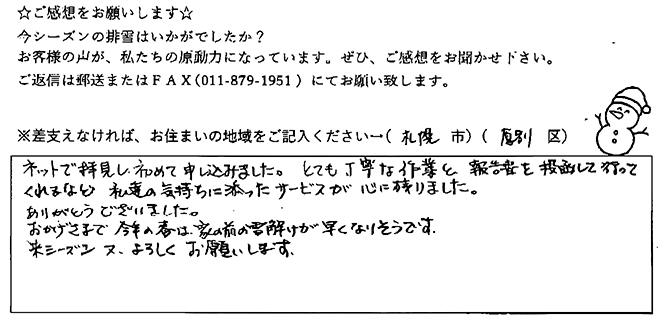 ☆ご感想をお願いします☆
今シーズンの排雪はいかがでしたか?
お客様の声が、私たちの原動力になっています。ぜひ、ご感想をお聞かせ下さい。
ご返信は郵送またはFAX(011-879-1951)にてお願い致します。
※差支えなければ、お住まいの地域をご記入ください→(札幌 市)(厚別 区)
ネットで拝見し初めて申し込みました。とても丁寧な作業と報告書を投函して行って
くれるなど私達の気持ちに添ったサービスが心に残りました。
ありがとうございました。
おかげさまで今年の春は、家の前の雪解けが早くなりそうです。
来シーズン又、よろしくお願いします。